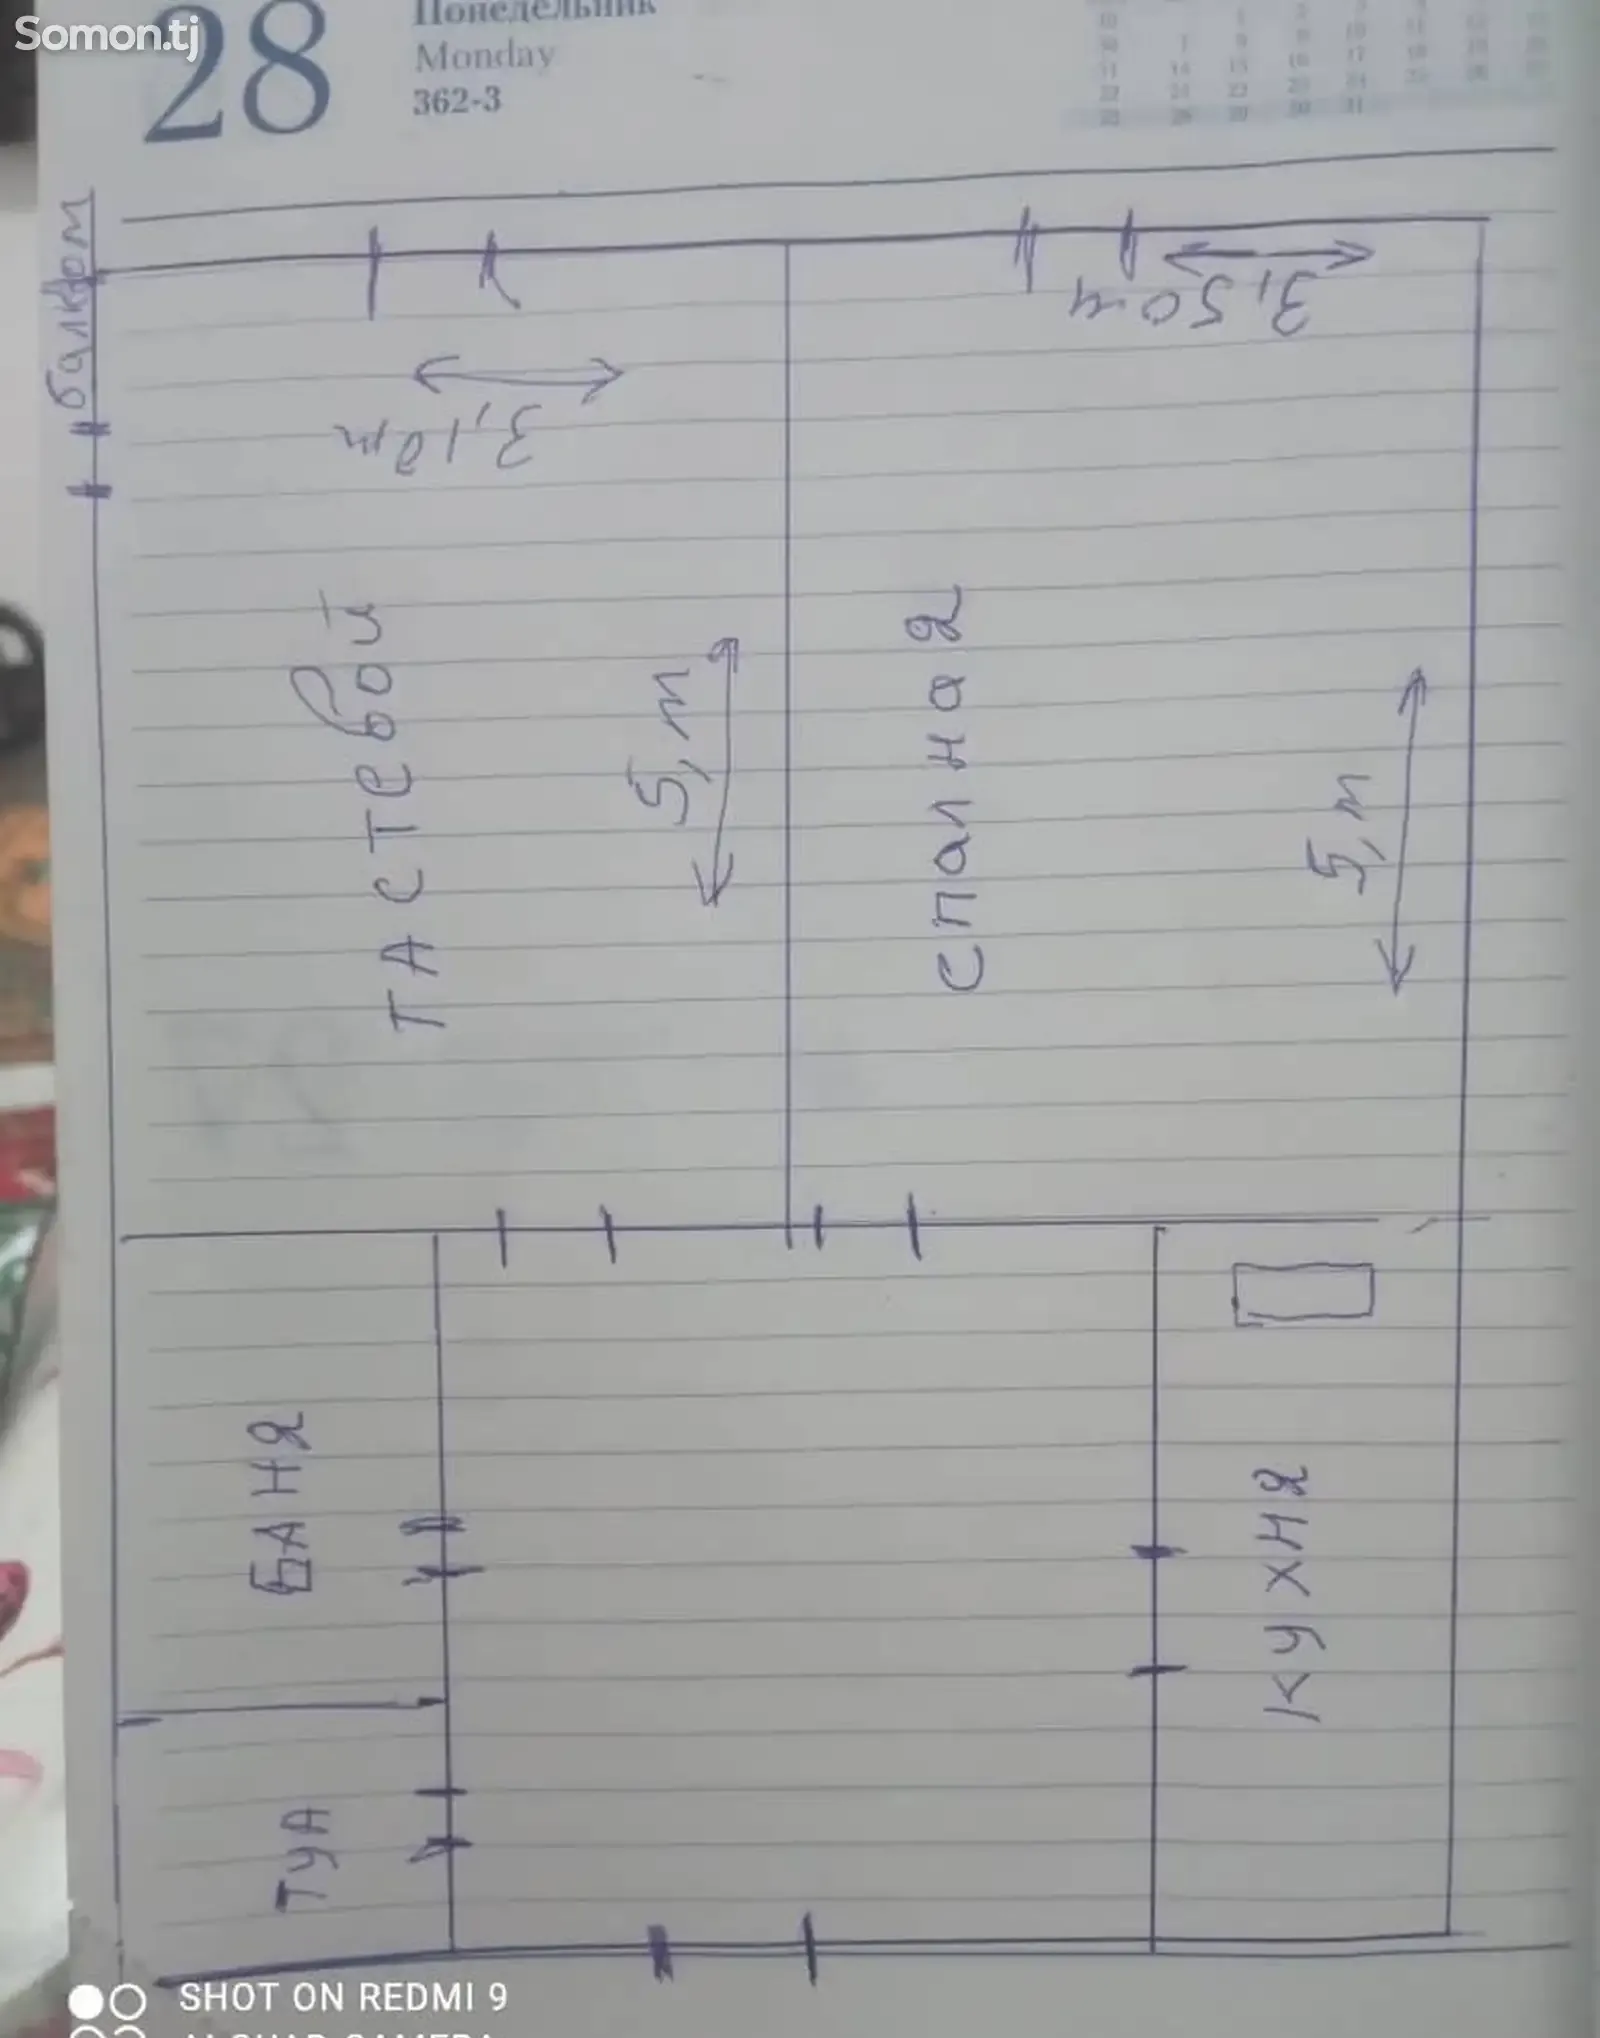 Somon.tj
28
Понедельник
Monday
362-3
балком
3,50м
3,10m
ТАСТЕВОЙ
5,m
спалная
5,m
БАНЯ
КУХНЯ
ТУА
SHOT ON REDMI 9